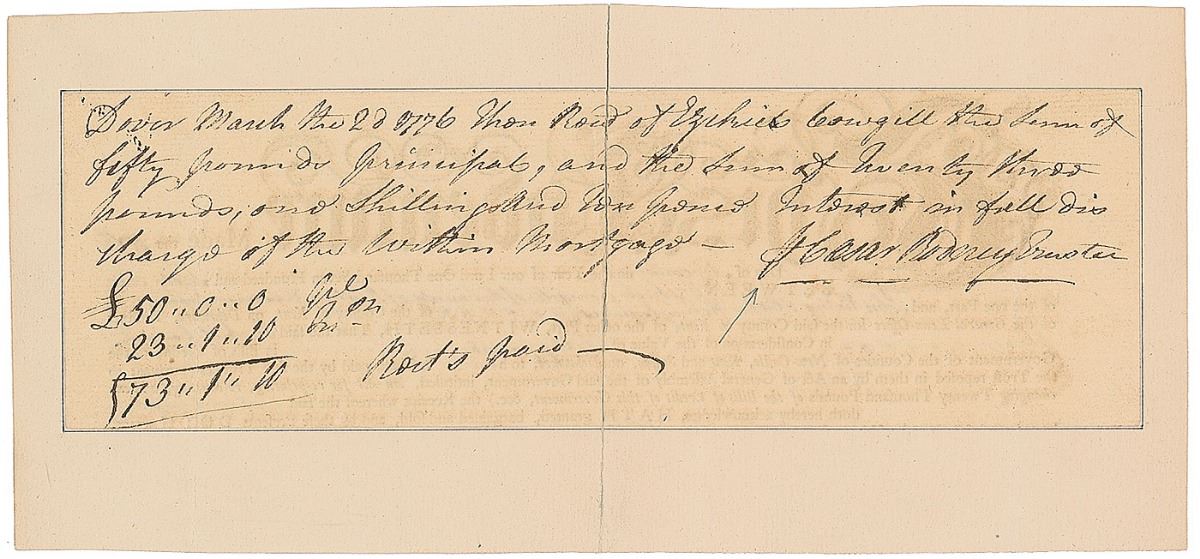 Dover March the 2d 1776 Then Recd of Ezekiel Cowgill the Sum of
fifty pounds principal, and the Sum of Twenty three
pounds, one Shillings and Ten pence Interest in full dis
charge of the Within Mortgage — Caesar Rodney Trustee
£50 ,, 0 ,, 0
23 ,, 1 ,, 10
£73 ,, 1 ,, 10
paid —